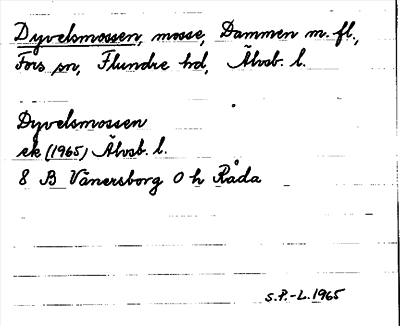 Dyvelsmossen, mosse, Dammen m. fl.,
Fors sn, Flundre hd, Älvsb. l.
Dyvelsmossen
ek (1965) Älvsb. l.
8 B Vänersborg 0 h Råda
S.P.-L. 1965